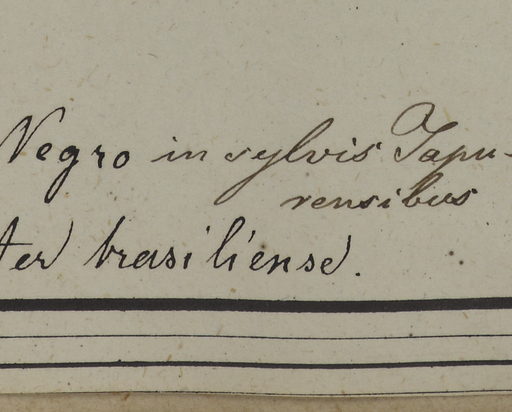 Negro in sylvis Japu-
rensibus
ter brasiliense.